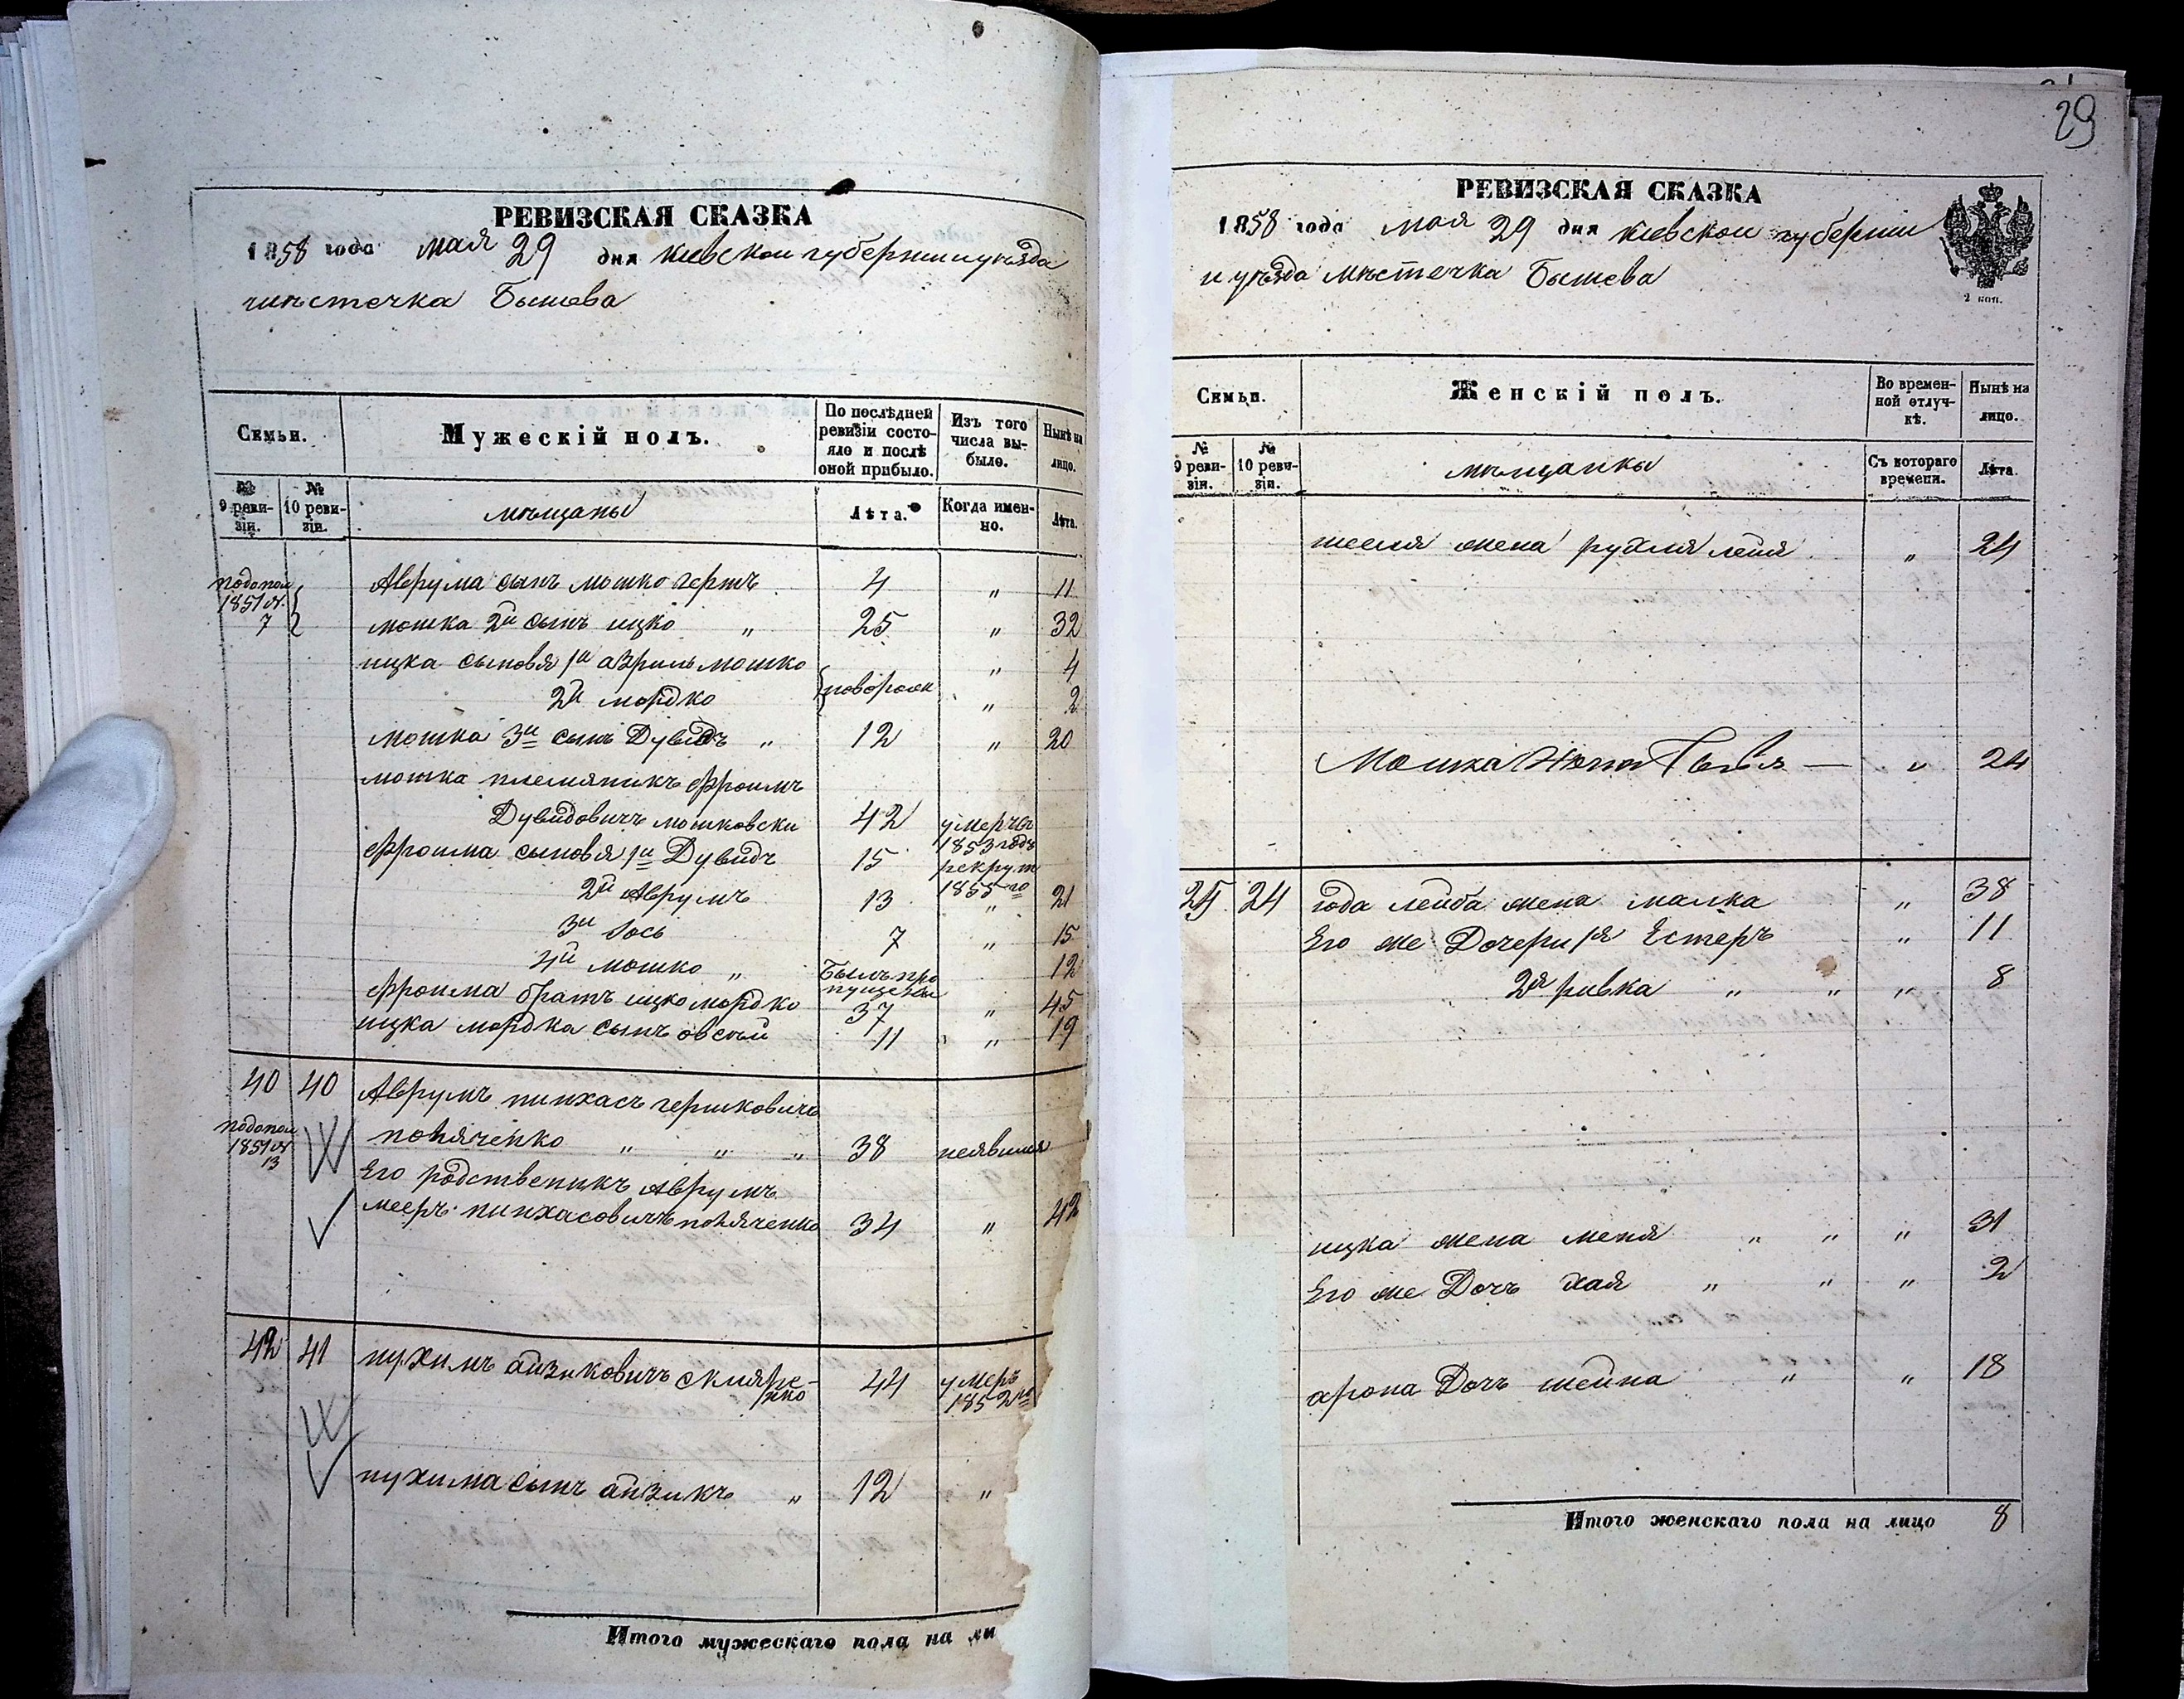 РЕВИЗСКАЯ СКАЗКА
1858 года мая 29 дня киевской губернии и уезда
мѣстечка Бышева
Семьи.
Мужескій полъ.
По послѣдней ревизіи состояло и послѣ оной прибыло.
Изъ того числа выбыло.
Нынѣ на лицо.
№ 9 ревизіи.
№ 10 ревизіи.
мѣщаны
Лѣта.
Когда именно.
Лѣта.
1851 7
Аврума сынъ мошко гершъ 4 " 11
мошка 2й сынъ ицко " 25 " 32
ицка сыновя 1й азриль мошко " 4
2й мордко " 2
мошка 3й сынъ Дувидъ " 12 " 20
мошка племяникъ фроимъ
Дувидовичъ мошковски 42 умеръ въ 1853 годе
фроима сыновя 1й Дувидъ 15 рекрут 1855 го
2й Аврумъ 13 " 21
3й Іось 7 " 15
4й мошко " Былъ пропущенъ 12
фроима братъ ицко мордко 37 " 45
ицка мордка сынъ овсей 11 " 19
40 40 Аврумъ пинхасъ гершковичъ
1851 13
поляченко " " " 38 неявился
Его родственикъ Аврумъ
мееръ пинхасовичъ поляченко 34 " 42
42 41 нухимъ айзиковичъ скляренко 44 умеръ 1852 го
нухима сынъ айзикъ " 12 "
Итого мужескаго пола на ли
29
РЕВИЗСКАЯ СКАЗКА
1858 года мая 29 дня киевской губернии
и уѣзда мѣстечка Бышева
2 коп.
Семьи.
Женскій полъ.
Во временной отлучкѣ.
Нынѣ на лицо.
№ 9 ревизіи.
№ 10 ревизіи.
мѣщанки
Съ котораго времени.
Лѣта.
жена рухля лейя " 24
Мошка — " 24
25 24 лейба жена малка " 38
Его же Дочери 1я Естеръ " 11
2я ривка " " " 8
ицка жена меня " " " 31
Его же Дочъ хая " " " 2
арона Дочъ шейна " " 18
Итого женскаго пола на лицо 8